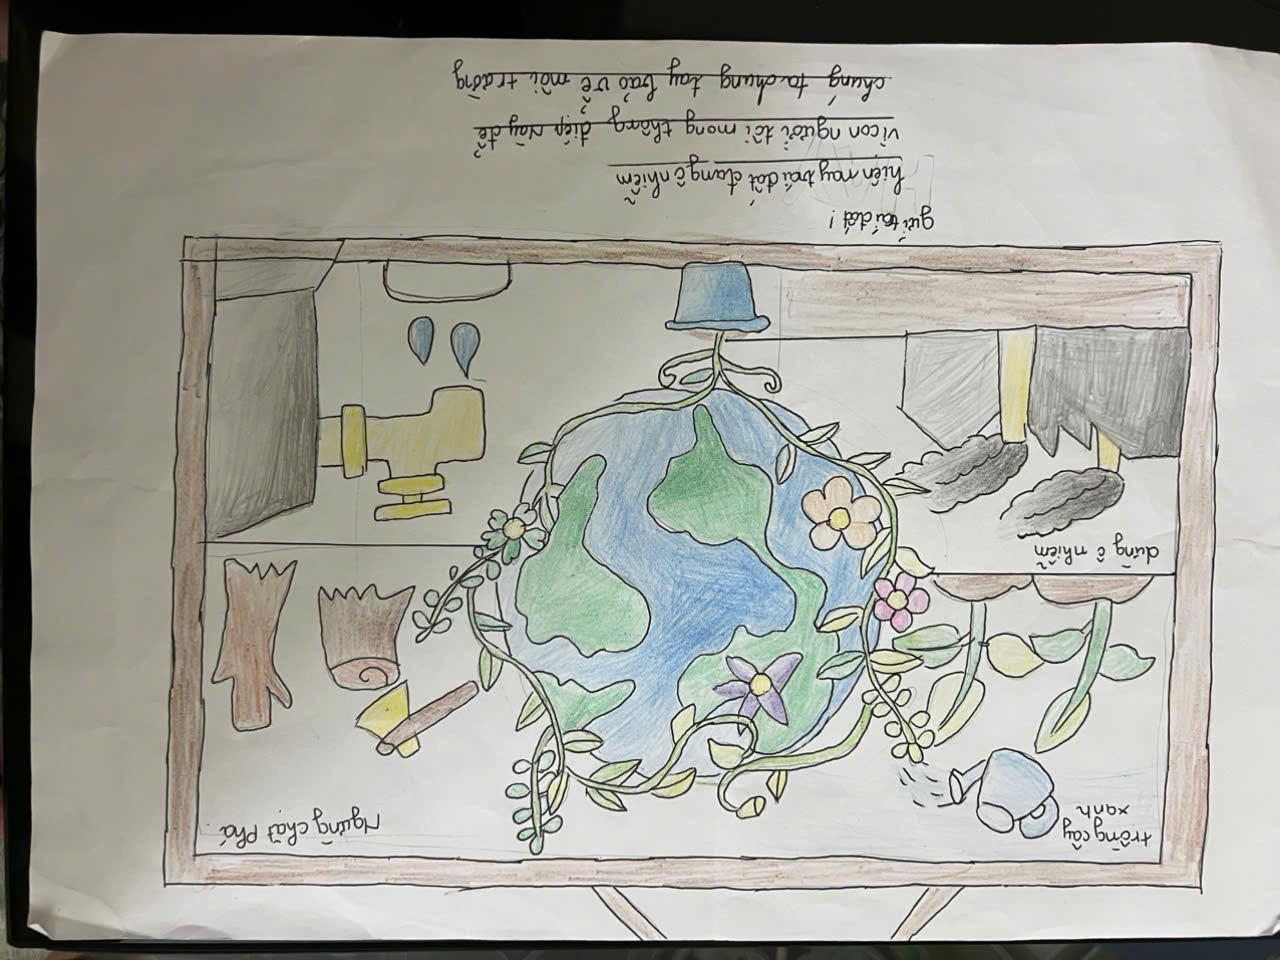 trồng cây
xanh
Ngừng chặt phá
dừng ô nhiễm
gửi trái đất!
hiện nay trái đất đang ô nhiễm
vì con người tôi mong thông điệp này để
chúng ta chung tay bảo vệ môi trường